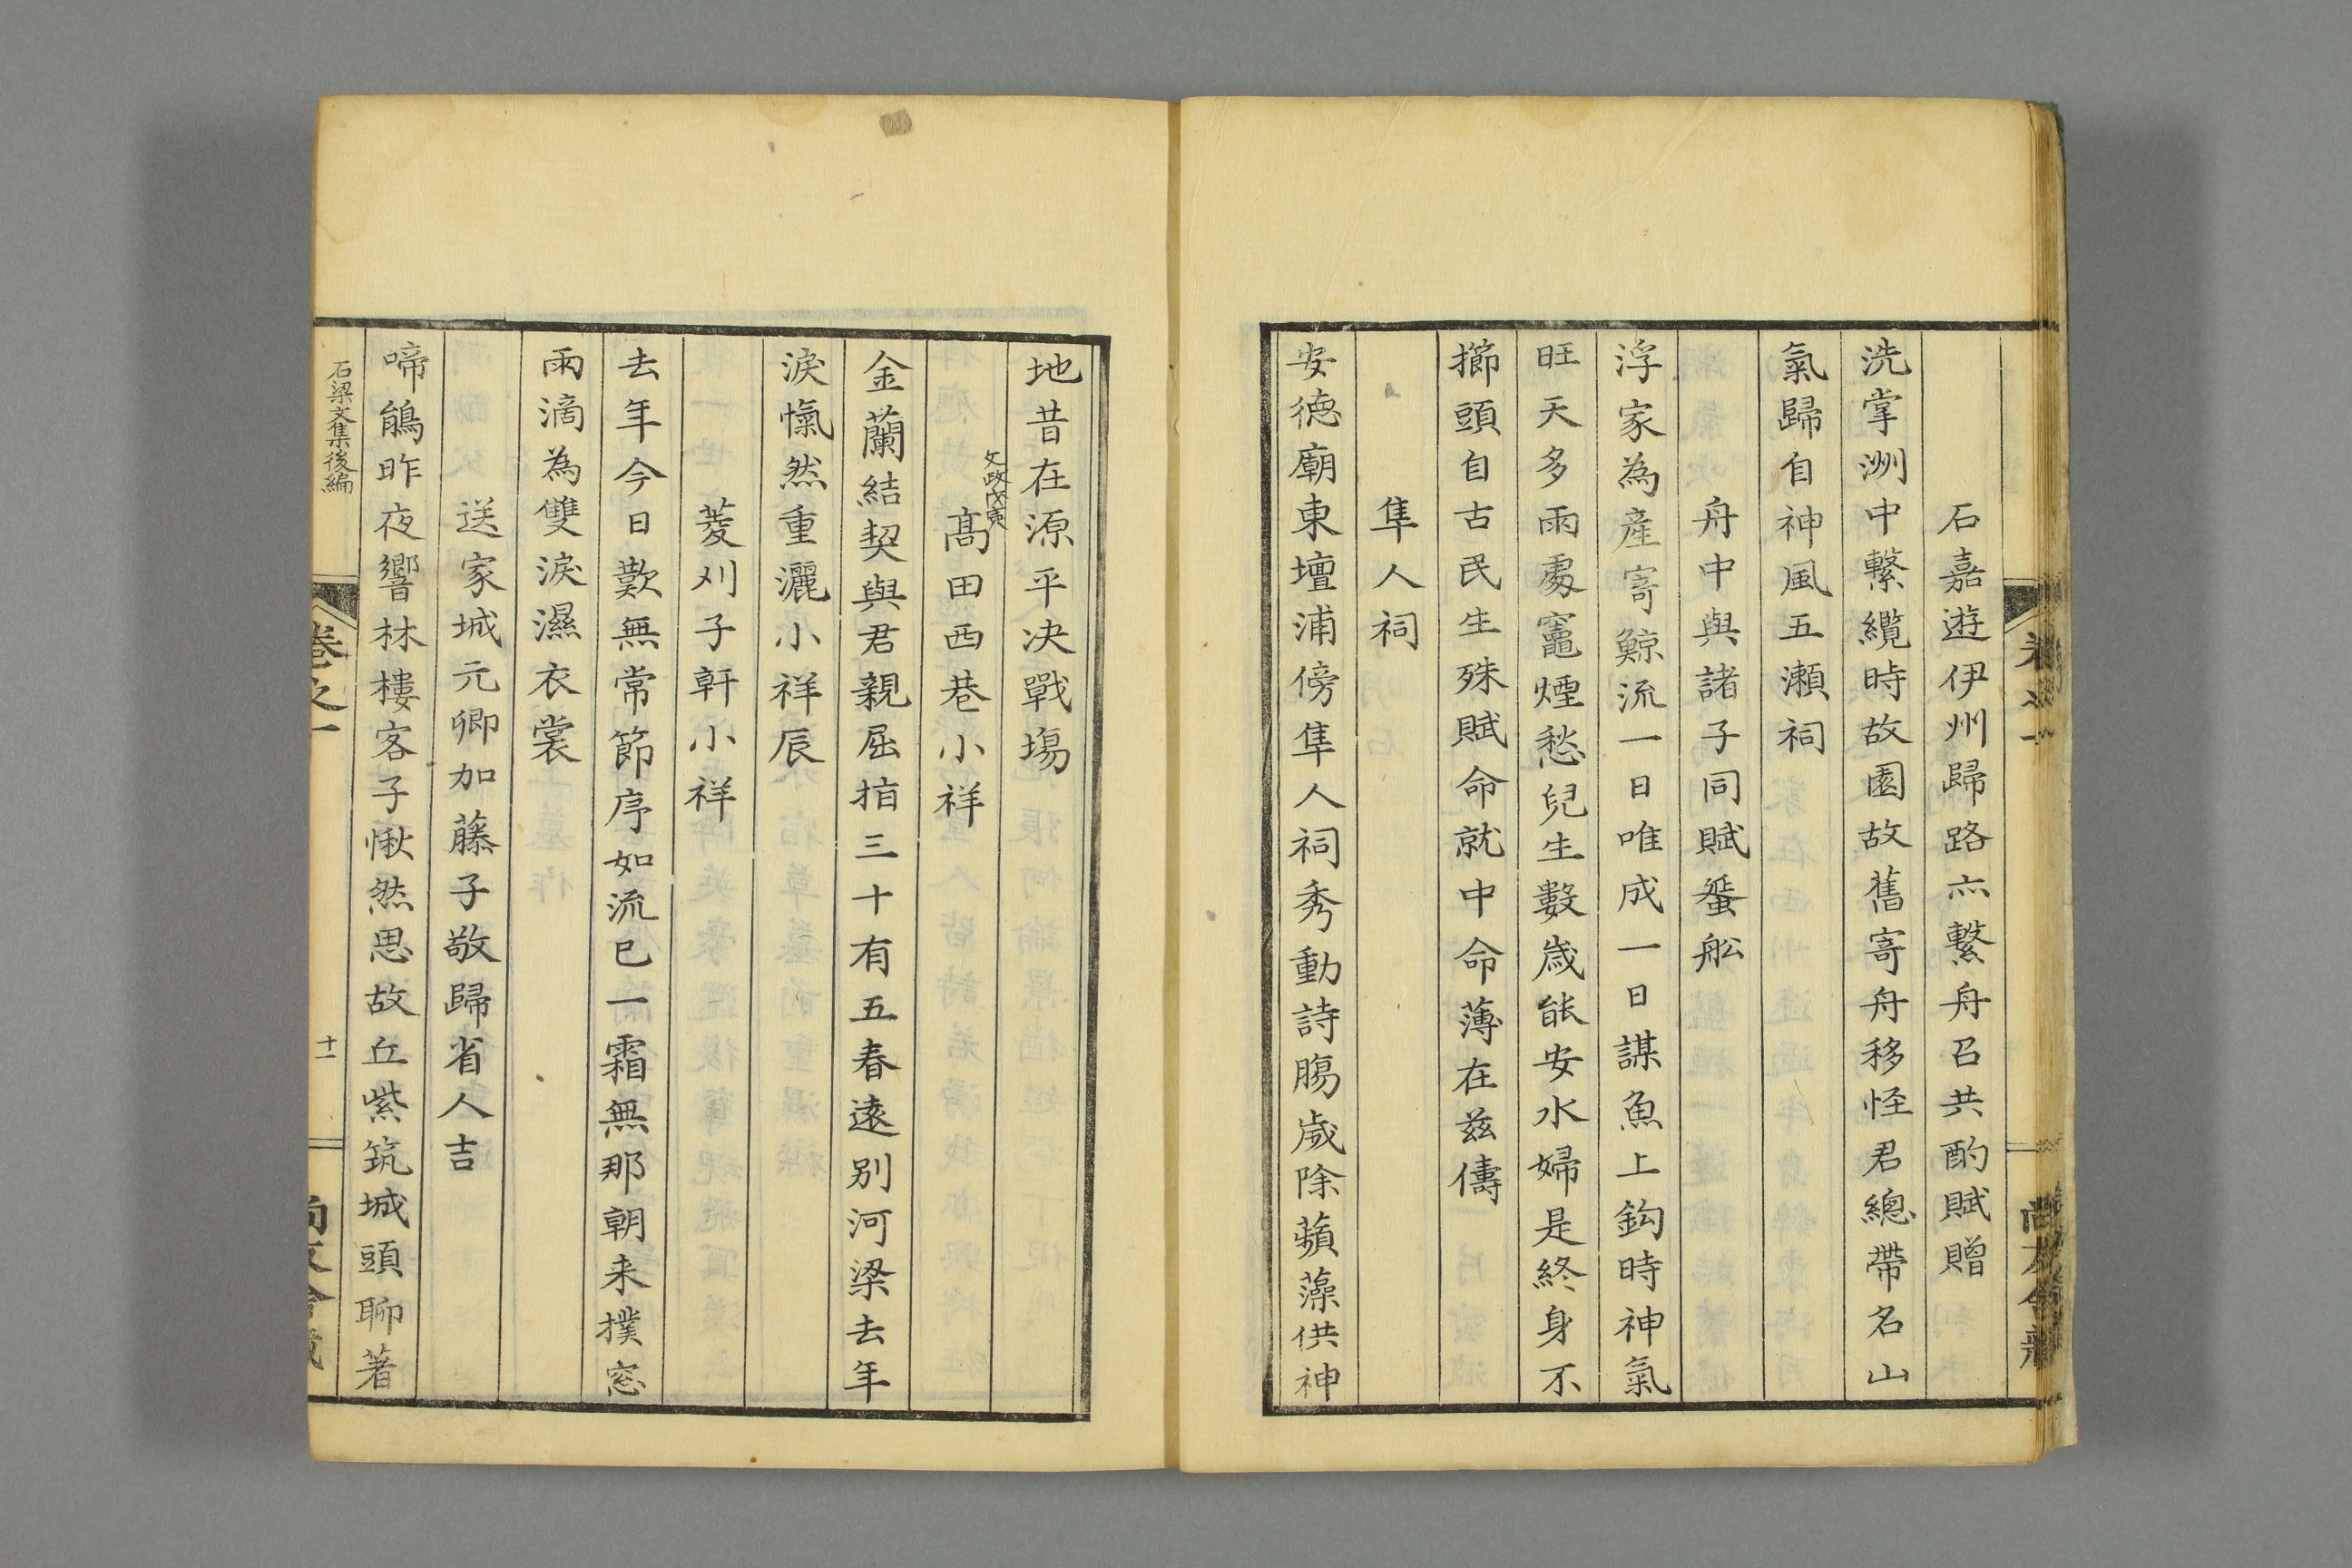 石嘉遊伊州歸路亦繫舟召共酌賦贈
洗掌洲中繫纜時故園故舊寄舟移怪君總帶名山
氣歸自神風五瀬祠
舟中與諸子同賦蜑舩
浮家為産寄鯨流一日唯成一日謀魚上鈎時神氣
旺天多雨處竈煙愁兒生數歳能安水婦是終身不
擳頭自古民生殊賦命就中命薄在兹儔
隼人祠
安徳廟東壇浦傍隼人祠秀動詩腸歳除蘋藻供神
地昔在源平决戰塲
文政戊寅
髙田西巷小祥
金蘭結契與君親屈指三十有五春遠别河梁去年
淚愾然重灑小祥辰
菱刈子軒小祥
去年今日歎無常節序如流已一霜無那朝来撲窓
雨滴為雙淚濕衣裳
送家城元卿加藤子敬歸省人吉
啼鵑昨夜響林樓客子愀然思故丘紫筑城頭聊著
石梁文集後編
卷之一
十一